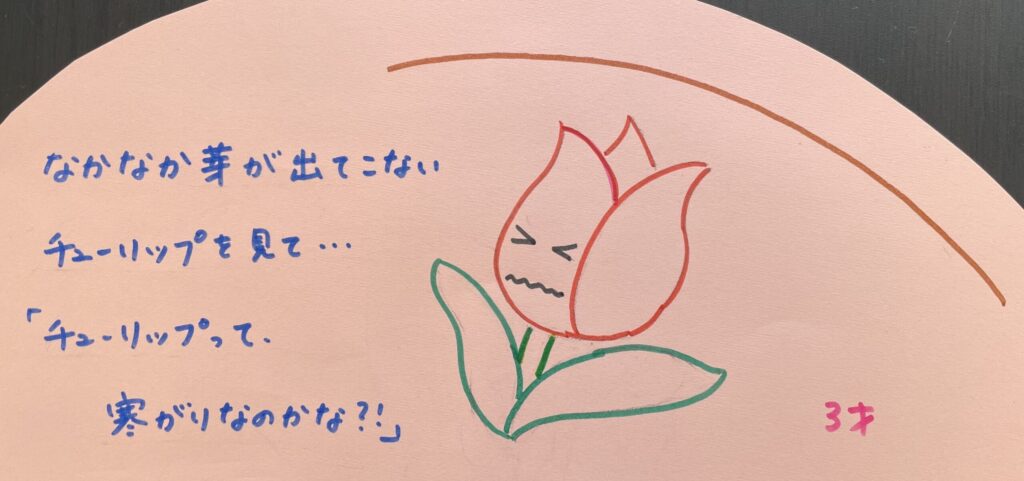 なかなか芽が出てこない
チューリップを見て…
「チューリップって、
寒がりなのかな?!」
3才